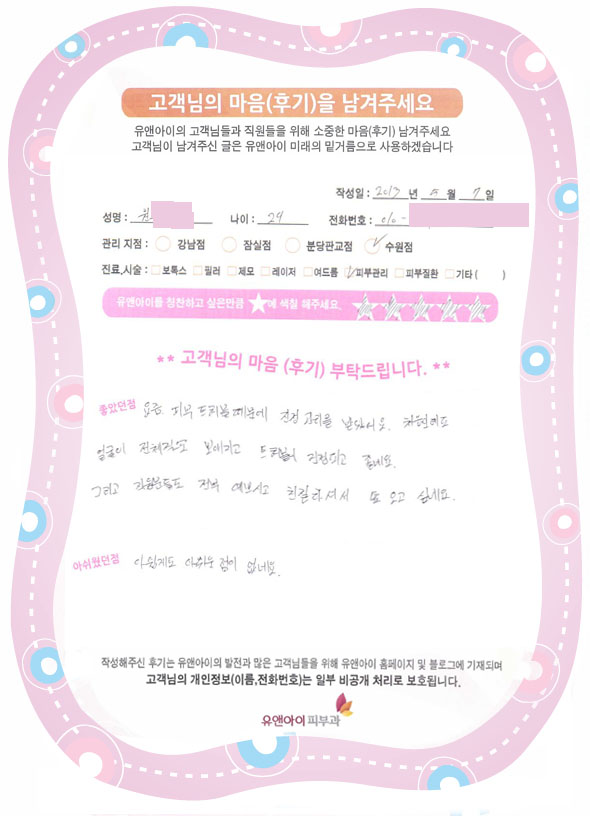 고객님의 마음(후기)을 남겨주세요
유앤아이의 고객님들과 직원들을 위해 소중한 마음(후기) 남겨주세요
고객님이 남겨주신 글은 유앤아이 미래의 밑거름으로 사용하겠습니다
작성일 : 2013 년 월 7 일
성명 : 나이 : 29 전화번호 : 010-
관리 지점 : 강남점 잠실점 분당판교점 수원점
진료,시술 : 보톡스 필러 제모 레이저 여드름 피부관리 피부질환 기타 ( )
유앤아이를 칭찬하고 싶은만큼 ★에 색칠 해주세요.
** 고객님의 마음 (후기) 부탁드립니다. **
좋았던점 요즘 피부 트러블 때문에 진정 관리를 받았어요.
얼굴이 보이고 트러블이 진정되고 좋네요.
그리고 직원분들도 전부 예쁘시고 친절하셔서 또 오고 싶네요.
아쉬웠던점 아쉽게도 아쉬운 점이 없네요.
작성해주신 후기는 유앤아이의 발전과 많은 고객님들을 위해 유앤아이 홈페이지 및 블로그에 기재되며
고객님의 개인정보(이름,전화번호)는 일부 비공개 처리로 보호됩니다.
유앤아이피부과